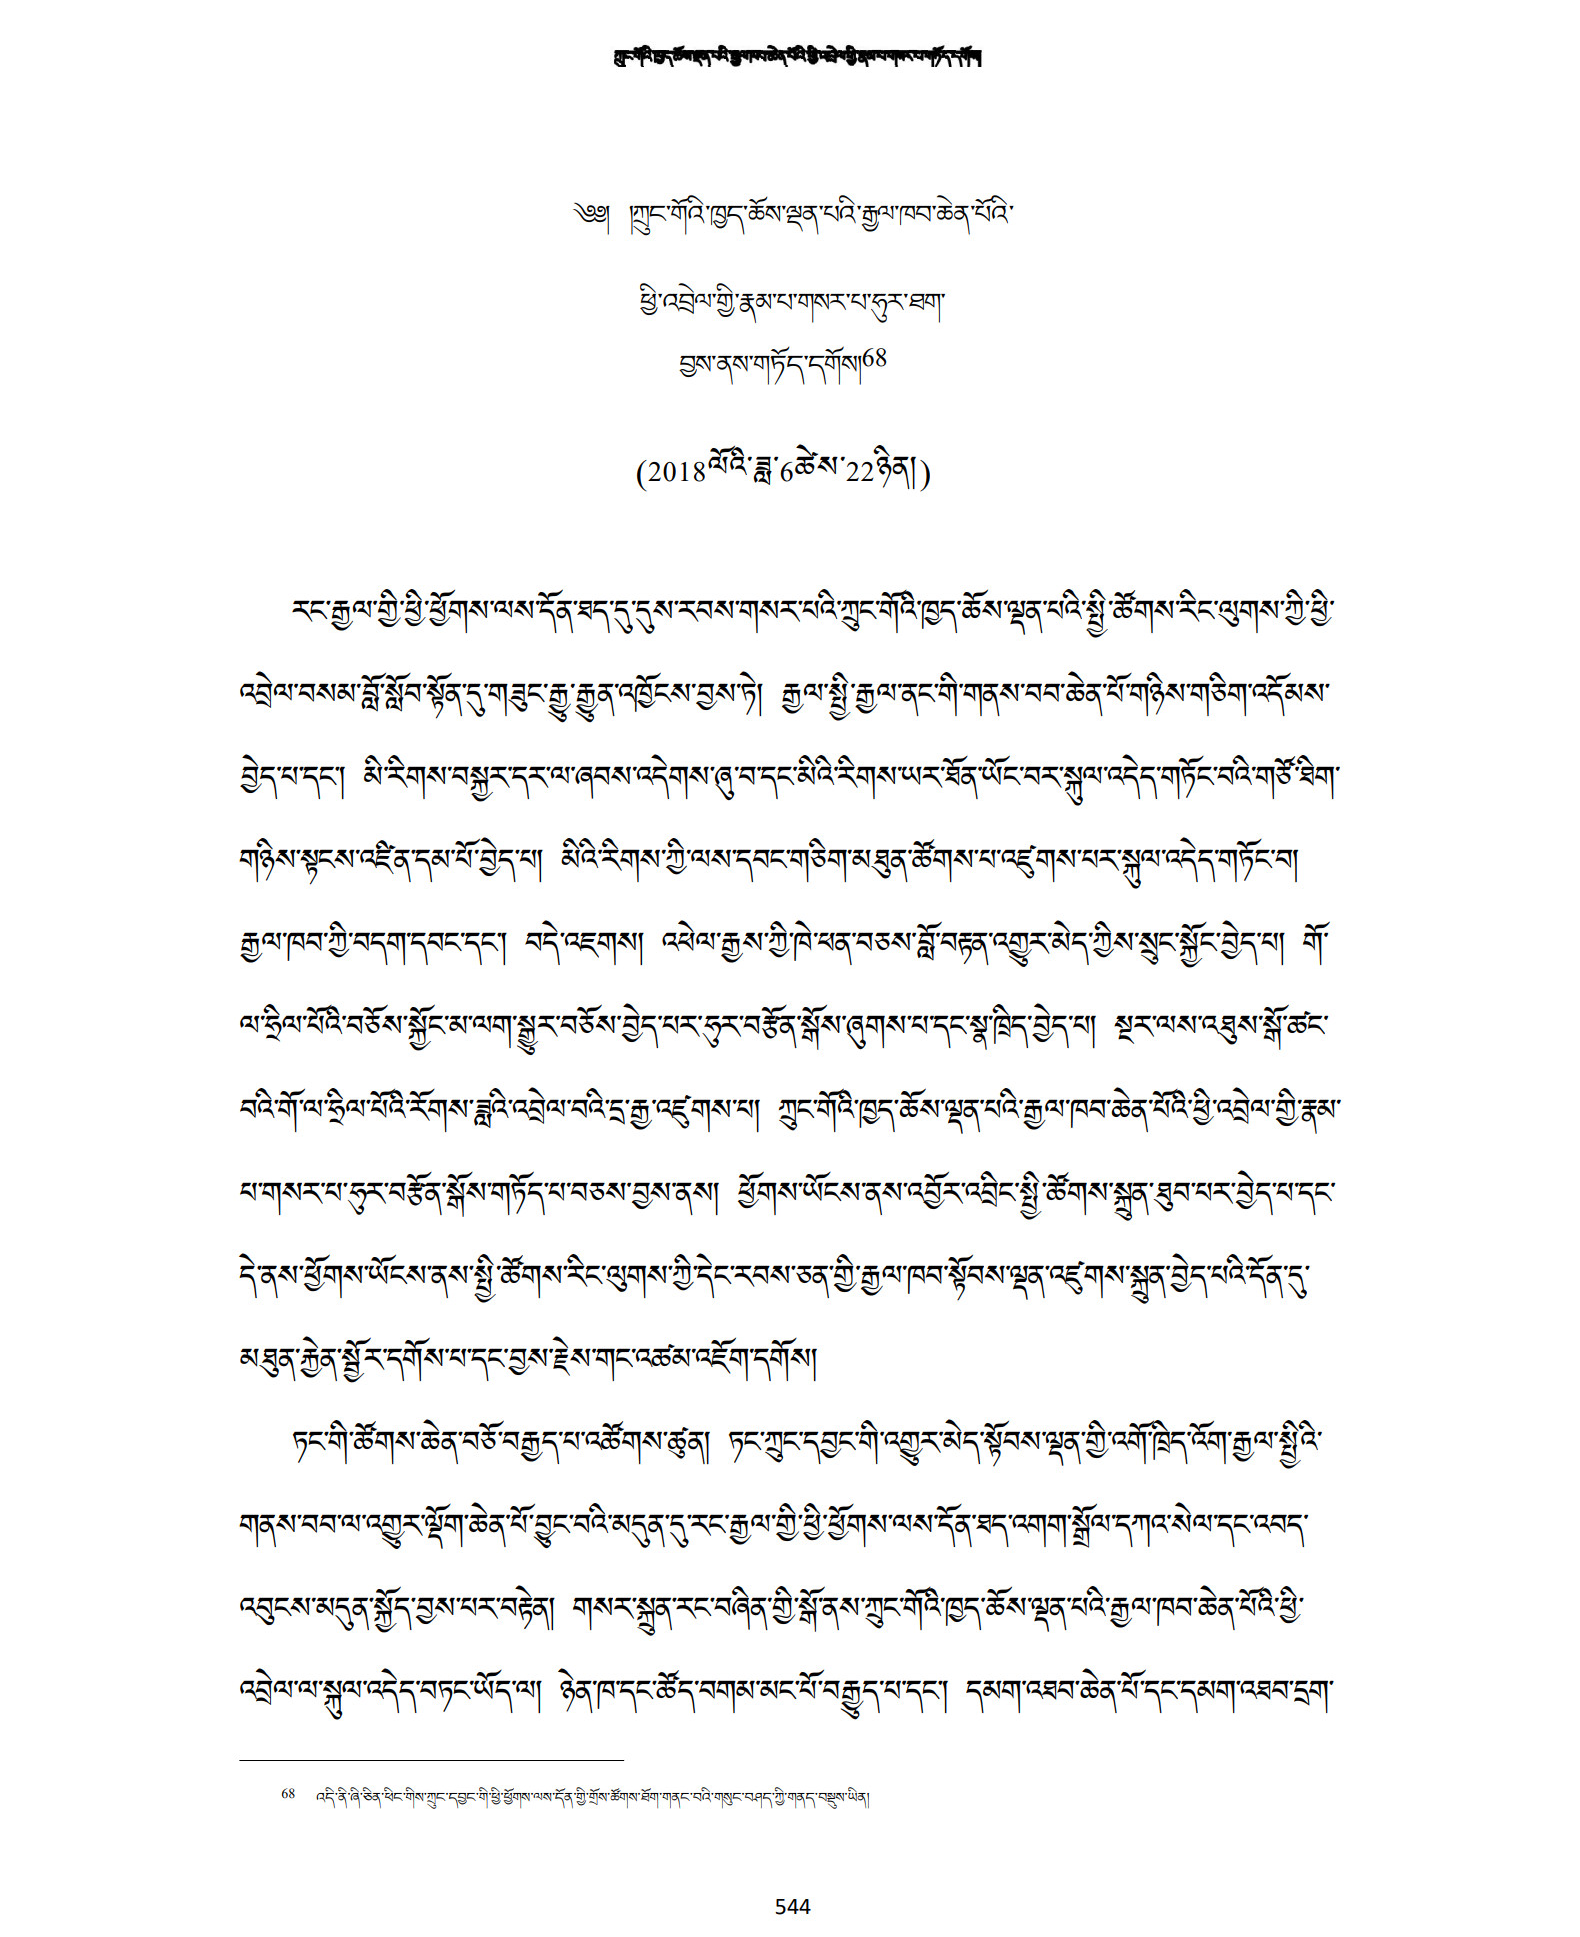 ཀྲུང་གོའི་ཁྱད་ཆོས་ལྡན་པའི་རྒྱལ་ཁབ་ཆེན་པོའི་ཕྱི་འབྲེལ་གྱི་རྣམ་པ་གསར་པ་གཏོད་དགོས།
༄༅། །ཀྲུང་གོའི་ཁྱད་ཆོས་ལྡན་པའི་རྒྱལ་ཁབ་ཆེན་པོའི་
ཕྱི་འབྲེལ་གྱི་རྣམ་པ་གསར་པ་ཧུར་ཐག་
བྱས་ནས་གཏོད་དགོས།68
(2018ལོའི་ཟླ་6ཚེས་22ཉིན།)
རང་རྒྱལ་གྱི་ཕྱི་ཕྱོགས་ལས་དོན་ཐད་དུ་དུས་རབས་གསར་པའི་ཀྲུང་གོའི་ཁྱད་ཆོས་ལྡན་པའི་སྤྱི་ཚོགས་རིང་ལུགས་ཀྱི་ཕྱི་
འབྲེལ་བསམ་བློ་སློབ་སྟོན་དུ་གཟུང་རྒྱུ་རྒྱུན་འཁྱོངས་བྱས་ཏེ། རྒྱལ་སྤྱི་རྒྱལ་ནང་གི་གནས་བབ་ཆེན་པོ་གཉིས་གཅིག་འདོམས་
བྱེད་པ་དང་། མི་རིགས་བསྐྱར་དར་ལ་ཞབས་འདེགས་ཞུ་བ་དང་མིའི་རིགས་ཡར་ཐོན་ཡོང་བར་སྐུལ་འདེད་གཏོང་བའི་གཙོ་ཐིག་
གཉིས་སྟངས་འཛིན་དམ་པོ་བྱེད་པ། མིའི་རིགས་ཀྱི་ལས་དབང་གཅིག་མཐུན་ཚོགས་པ་འཛུགས་པར་སྐུལ་འདེད་གཏོང་བ།
རྒྱལ་ཁབ་ཀྱི་བདག་དབང་དང་། བདེ་འཇགས། འཕེལ་རྒྱས་ཀྱི་ཁེ་ཕན་བཅས་བློ་བརྟན་འགྱུར་མེད་ཀྱིས་སྲུང་སྐྱོང་བྱེད་པ། གོ་
ལ་ཧྲིལ་པོའི་བཅོས་སྐྱོང་མ་ལག་སྒྱུར་བཅོས་བྱེད་པར་ཧུར་བརྩོན་སྒོས་ཞུགས་པ་དང་སྣ་ཁྲིད་བྱེད་པ། སྔར་ལས་འཐུས་སྒོ་ཚང་
བའི་གོ་ལ་ཧྲིལ་པོའི་རོགས་ཟླའི་འབྲེལ་བའི་དྲ་རྒྱ་འཛུགས་པ། ཀྲུང་གོའི་ཁྱད་ཆོས་ལྡན་པའི་རྒྱལ་ཁབ་ཆེན་པོའི་ཕྱི་འབྲེལ་གྱི་རྣམ་
པ་གསར་པ་ཧུར་བརྩོན་སྒོས་གཏོད་པ་བཅས་བྱས་ནས། ཕྱོགས་ཡོངས་ནས་འབྱོར་འབྲིང་སྤྱི་ཚོགས་སྐྲུན་ཐུབ་པར་བྱེད་པ་དང་
དེ་ནས་ཕྱོགས་ཡོངས་ནས་སྤྱི་ཚོགས་རིང་ལུགས་ཀྱི་དེང་རབས་ཅན་གྱི་རྒྱལ་ཁབ་སྟོབས་ལྡན་འཛུགས་སྐྲུན་བྱེད་པའི་དོན་དུ་
མཐུན་རྐྱེན་སྦྱོར་དགོས་པ་དང་བྱས་རྗེས་གང་འཚམ་འཇོག་དགོས།
ཏང་གི་ཚོགས་ཆེན་བཅོ་བརྒྱད་པ་འཚོགས་ཚུན། ཏང་ཀྲུང་དབྱང་གི་འགྱུར་མེད་སྟོབས་ལྡན་གྱི་འགོ་ཁྲིད་འོག་རྒྱལ་སྤྱིའི་
གནས་བབ་ལ་འགྱུར་ལྡོག་ཆེན་པོ་བྱུང་བའི་མདུན་དུ་རང་རྒྱལ་གྱི་ཕྱི་ཕྱོགས་ལས་དོན་ཐད་འགག་སྒྲོལ་དཀའ་སེལ་དང་འབད་
འབུངས་མདུན་སྐྱོད་བྱས་པར་བརྟེན། གསར་སྐྲུན་རང་བཞིན་གྱི་སྒོ་ནས་ཀྲུང་གོའི་ཁྱད་ཆོས་ལྡན་པའི་རྒྱལ་ཁབ་ཆེན་པོའི་ཕྱི་
འབྲེལ་ལ་སྐུལ་འདེད་བཏང་ཡོད་ལ། ཉེན་ཁ་དང་ཚོད་བགམ་མང་པོ་བརྒྱུད་པ་དང་། དམག་འཐབ་ཆེན་པོ་དང་དམག་འཐབ་དྲག་
68 འདི་ནི་ཞི་ཅིན་ཕིང་གིས་ཀྲུང་དབྱང་གི་ཕྱི་ཕྱོགས་ལས་དོན་གྱི་གྲོས་ཚོགས་ཐོག་གནང་བའི་གསུང་བཤད་ཀྱི་གནད་བསྡུས་ཡིན།
544